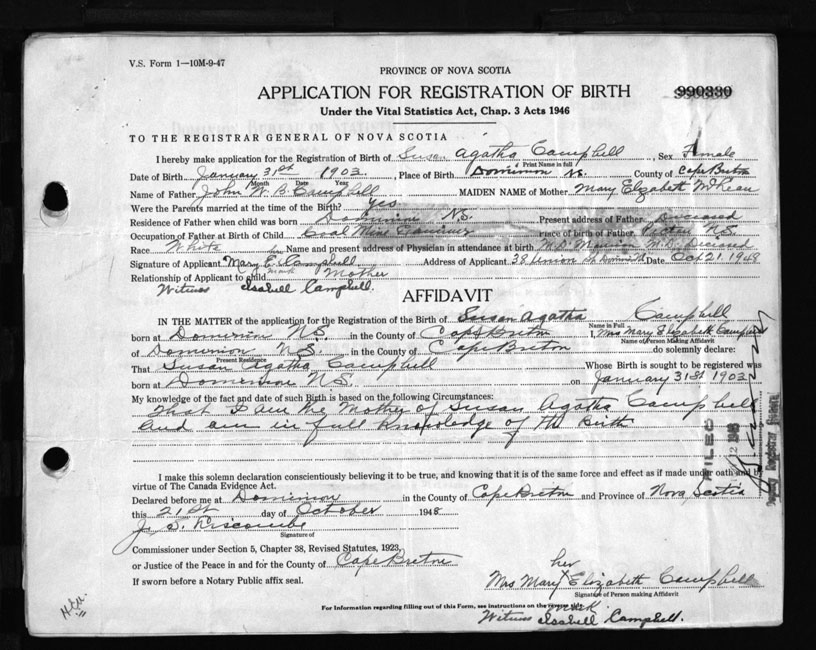 V.S. Form 1—10M-9-47
PROVINCE OF NOVA SCOTIA
APPLICATION FOR REGISTRATION OF BIRTH
990330
Under the Vital Statistics Act, Chap. 3 Acts 1946
TO THE REGISTRAR GENERAL OF NOVA SCOTIA
I hereby make application for the Registration of Birth of Susan Agatha Campbell, Sex Female
Print Name in full
Date of Birth January 31st 1903, Place of Birth Dominion NS. County of Cape Breton
Month Date Year
Name of Father John W. B Campbell MAIDEN NAME of Mother Mary Elizabeth McKean
Were the Parents married at the time of the Birth? Yes
Residence of Father when child was born Dominion NS. Present address of Father Deceased
Occupation of Father at Birth of Child Coal Mine Place of birth of Father Pictou N.S.
Race White Name and present address of Physician in attendance at birth M.D. Deceased
Signature of Applicant Mary E. Campbell Address of Applicant 38 Union St Dominion Date Oct 21, 1948
her
mark
Relationship of Applicant to child Mother
Witness Isabell Campbell.
AFFIDAVIT
IN THE MATTER of the application for the Registration of the Birth of Susan Agatha Campbell
Name in Full
born at Dominion N.S. in the County of Cape Breton I, Mrs Mary Elizabeth Campbell
Name of Person Making Affidavit
of Dominion N.S. in the County of Cape Breton do solemnly declare:
Present Residence
That Susan Agatha Campbell Whose Birth is sought to be registered was
born at Dominion NS. on January 31st 1903
My knowledge of the fact and date of such Birth is based on the following Circumstances:
That I am the Mother of Susan Agatha Campbell
And am in full knowledge of the Birth
I make this solemn declaration conscientiously believing it to be true, and knowing that it is of the same force and effect as if made under oath and by
virtue of The Canada Evidence Act.
Declared before me at Dominion in the County of Cape Breton and Province of Nova Scotia
this 21st day of October 1948
J. S. Liscombe
Signature of
Commissioner under Section 5, Chapter 38, Revised Statutes, 1923,
or Justice of the Peace in and for the County of Cape Breton
If sworn before a Notary Public affix seal.
her
Mrs Mary Elizabeth Campbell
Signature of Person making Affidavit
mark.
For Information regarding filling out of this Form, see instructions on the reverse
Witness Isabell Campbell.
FILED